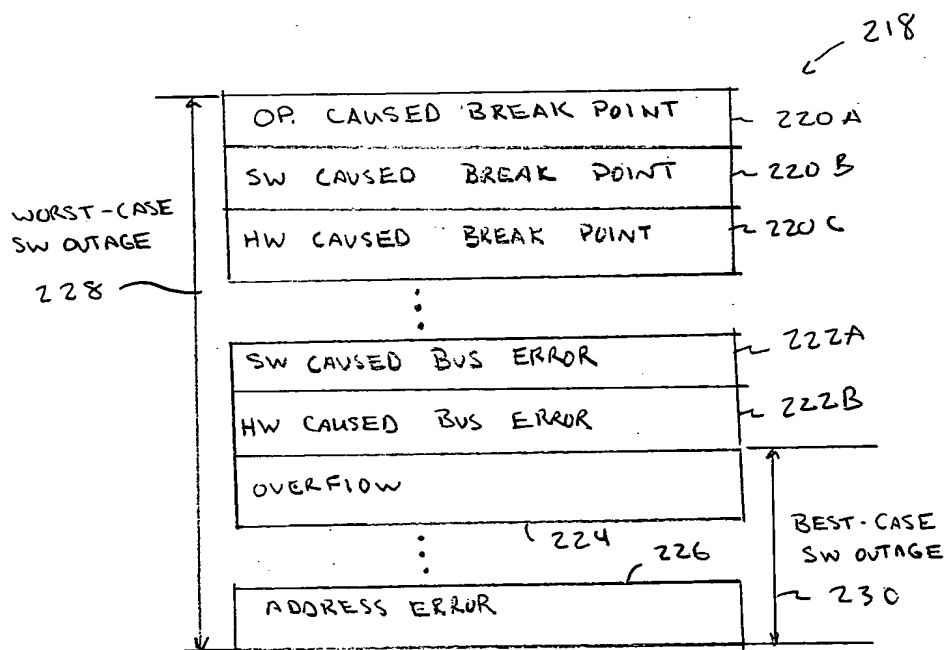 218
OP. CAUSED BREAK POINT
220A
SW CAUSED BREAK POINT
220B
HW CAUSED BREAK POINT
220C
WORST-CASE
SW OUTAGE
228
SW CAUSED BUS ERROR
222A
HW CAUSED BUS ERROR
222B
OVERFLOW
224
BEST-CASE
SW OUTAGE
230
226
ADDRESS ERROR